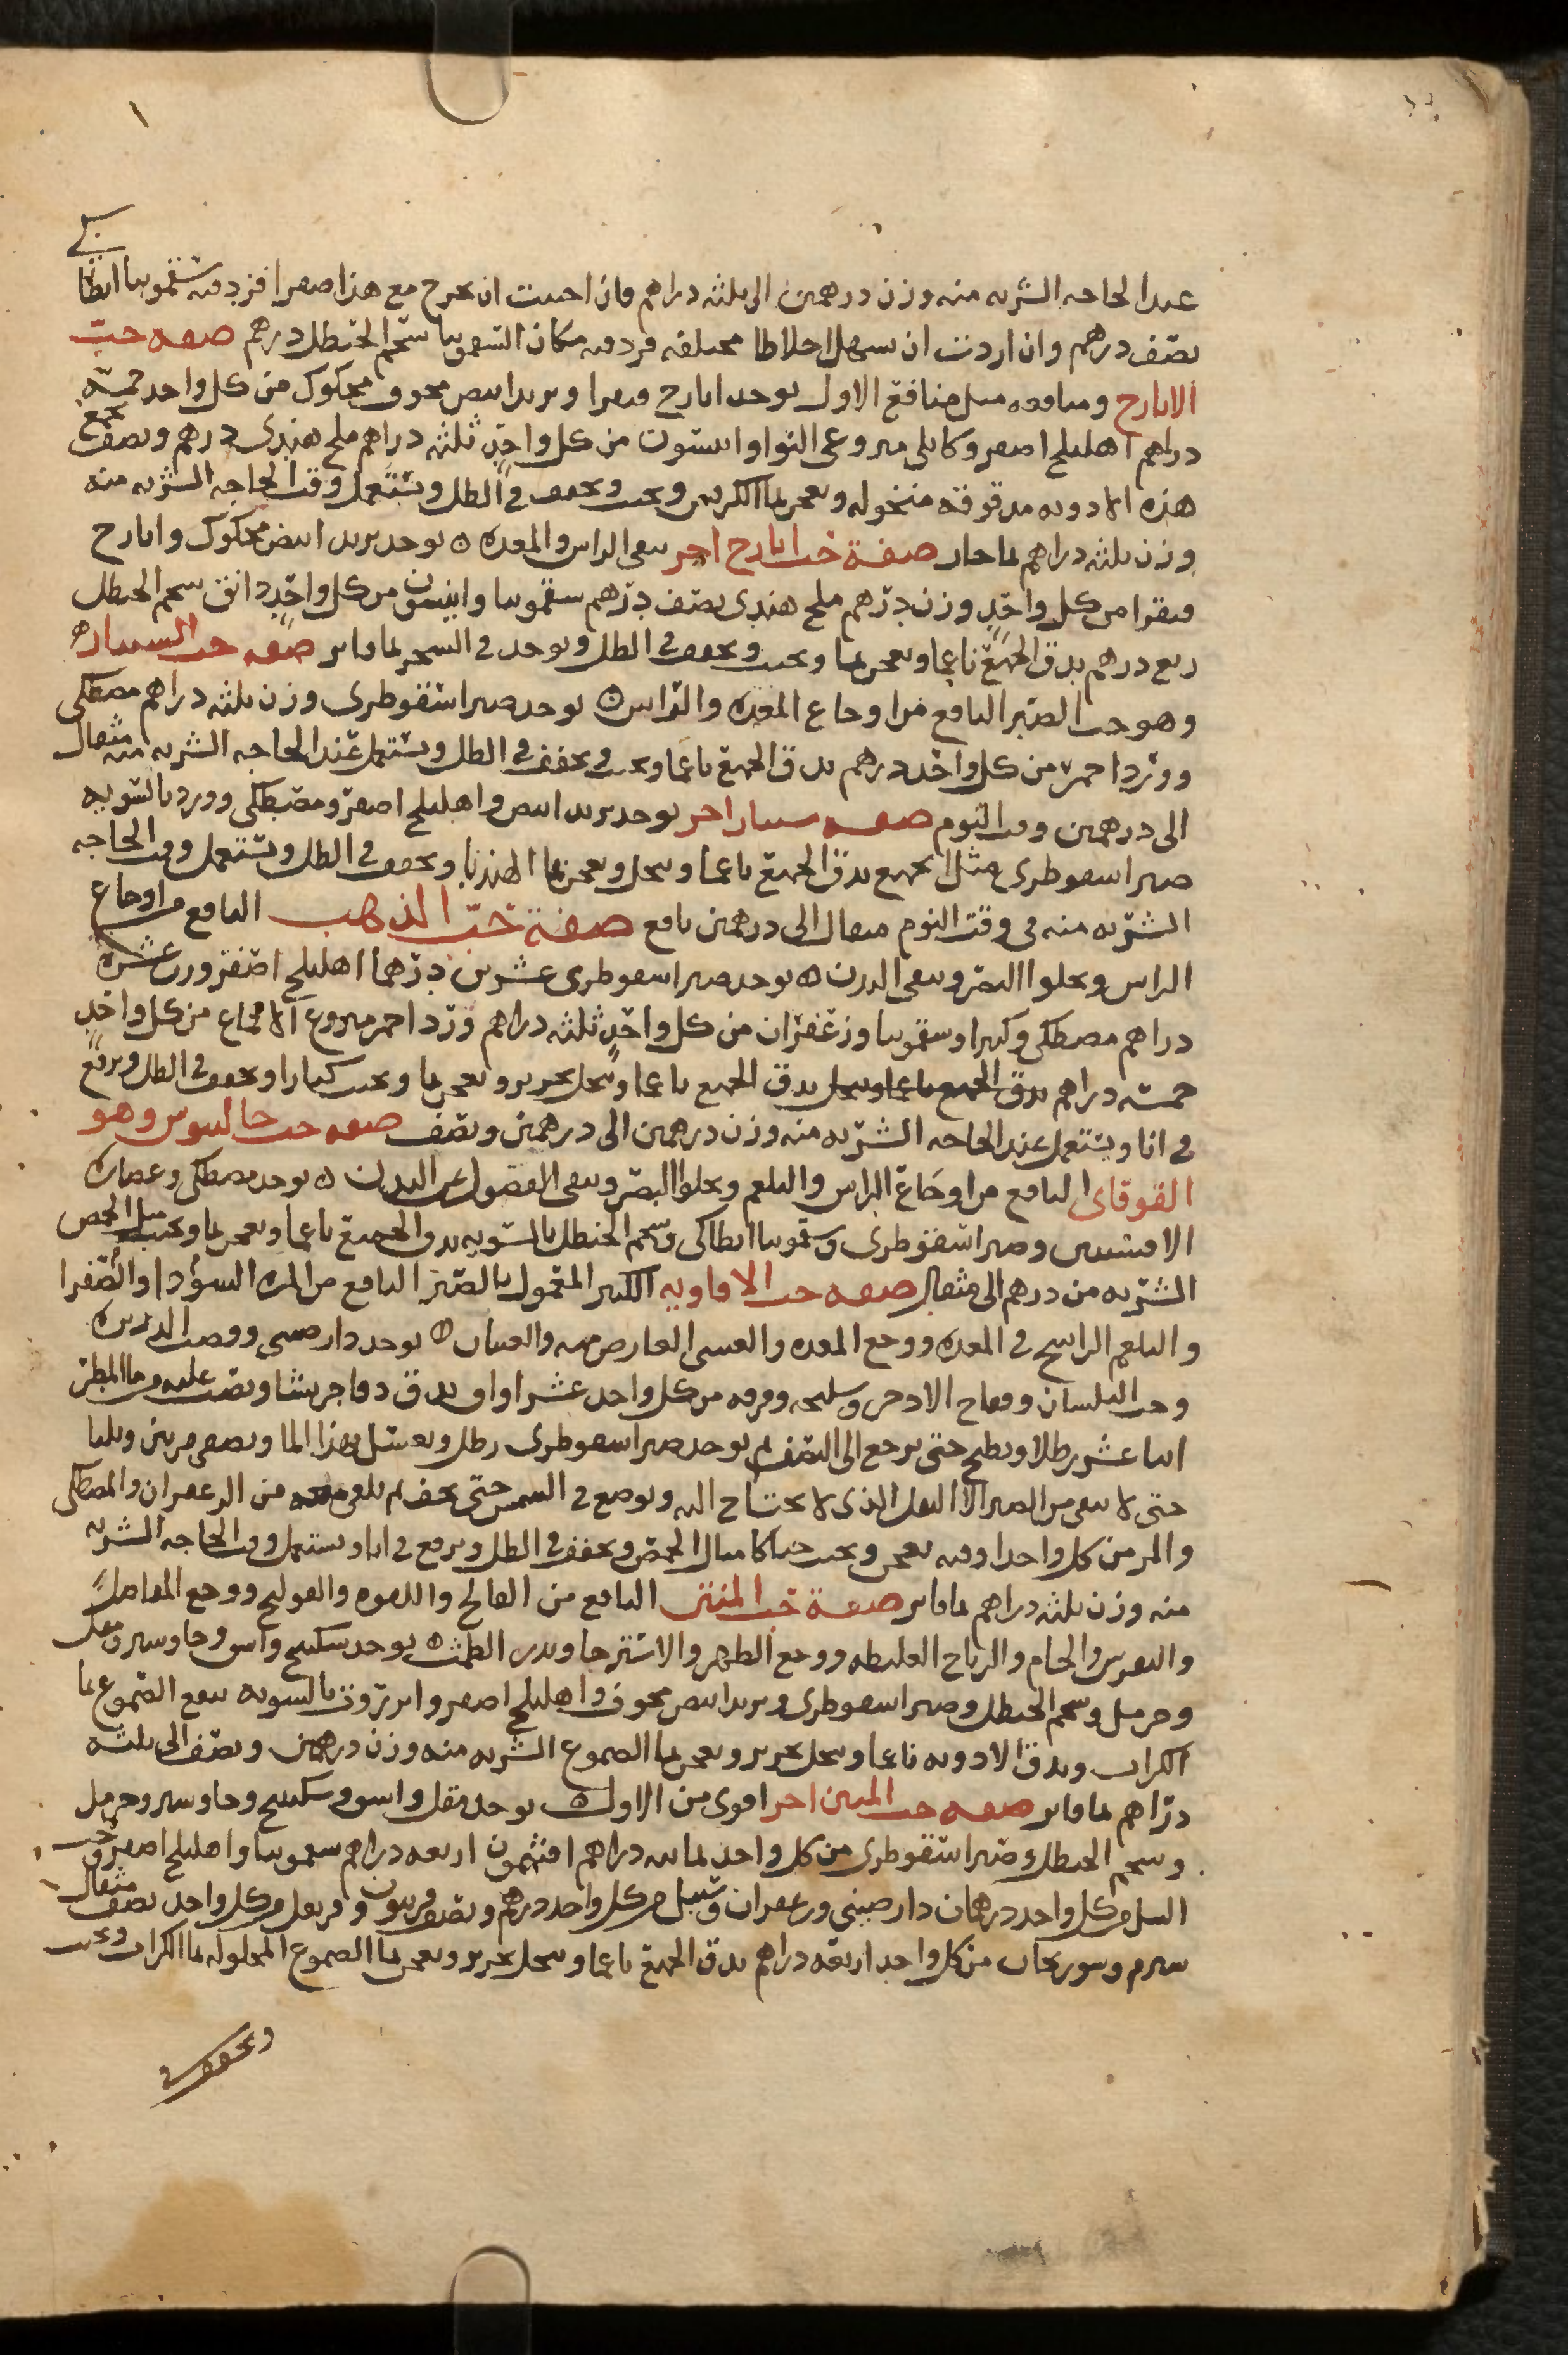 عند الحاجه الشربه منه وزن درهمين الى ثلثه دراهم فان احببت ان يخرج مع هذا صفرا فزد فيه سقمونيا انطاكي
نصف درهم وان اردت ان يسهل اخلاطا مختلفه فزد فيه مكان السقمونيا شحم الحنظل درهم صفه حب
الايارج ومنافعه مثل منافع الاول يوخذ ايارج فيقرا وتربد ابيض مجوف محكوك من كل واحد خمسه
دراهم اهليلج اصفر وكابلي منزوعي النوا وانيسون من كل واحد ثلثه دراهم ملح هندي درهم ونصف تجمع
هذه الادويه مدقوقه منخوله وتعجن بما الكرفس وتحبب وتجفف في الظل وتستعمل وقت الحاجه الشربه منه
وزن ثلثه دراهم بما حار صفة حب ايارج اخر ينقي الراس والمعده يوخذ تربد ابيض محكوك وايارج
فيقرا من كل واحد وزن درهم ملح هندي نصف درهم سقمونيا وانيسون من كل واحد دانق شحم الحنظل
ربع درهم يدق الجميع ناعما ويعجن بما ويحبب ويجفف في الظل ويوخذ في السحر بما فاتر صفه حب السياره
وهو حب الصبر النافع من اوجاع المعده والراس يوخذ صبر اسقوطري وزن ثلثه دراهم مصطكي
وورد احمر من كل واحد درهم يدق الجميع ناعما ويحبب ويجفف في الظل ويستعمل عند الحاجه الشربه منه مثقال
الى درهمين وقت النوم صفه سيار اخر يوخذ تربد ابيض واهليلج اصفر ومصطكي وورد بالسويه
صبر اسقوطري مثل الجميع يدق الجميع ناعما وينخل ويعجن بما الهندبا ويجفف في الظل ويستعمل وقت الحاجه
الشربه منه في وقت النوم مثقال الى درهمين نافع صفة حب الذهب النافع من اوجاع
الراس ويجلوا البصر وينقي البدن يوخذ صبر اسقوطري عشرين درهما اهليلج اصفر وزن عشره
دراهم مصطكي وكثيرا وسقمونيا وزعفران من كل واحد ثلثه دراهم ورد احمر منزوع الاقماع من كل واحد
خمسه دراهم يدق الجميع ناعما وينخل يدق الجميع ناعما وينخل بحرير ويعجن بما ويحبب كبارا ويجفف في الظل ويرفع
في انا ويستعمل عند الحاجه الشربه منه وزن درهمين الى درهمين ونصف صفه حب جالينوس وهو
القوقاي النافع من اوجاع الراس والبلغم ويجلوا البصر وينقي الفضول عن البدن يوخذ مصطكي وعصاره
الافسنتين وصبر اسقوطري وسقمونيا انطاكي وشحم الحنظل بالسويه يدق الجميع ناعما ويعجن بما ويحبب مثل الحمص
الشربه من درهم الى مثقال صفه حب الافاويه الكبير المعمول بالصبر النافع من المره السودا والصفرا
والبلغم الراسخ في المعده ووجع المعده والغشي العارض منه والغثيان يوخذ دارصيني وقصب الذريره
وحب البلسان وفقاح الاذخر وسليخه وقرفه من كل واحد عشر اواق يدق دقا جريشا ويصب عليه من ما المطر
اثنا عشر رطلا ويطبخ حتى يرجع الى النصف ثم يوخذ صبر اسقوطري رطل ويغسل بهذا الما ويصفى مرتين وثلثا
حتى لا يبقى من الصبر الا الثفل الذي لا يحتاج اليه ويوضع في الشمس حتى يجف ثم يلقى معه من الزعفران والمصطكي
والمر من كل واحد اوقيه يعجن ويحبب حبا كامثال الحمص ويجفف في الظل ويرفع في انا ويستعمل وقت الحاجه الشربه
منه وزن ثلثه دراهم بما فاتر صفة حب المنتن النافع من الفالج واللقوه والقولنج ووجع المفاصل
والنقرس والخام والرياح الغليظه ووجع الظهر والاسترخا ويدر الطمث يوخذ سكبينج واشق وجاوشير ومقل
وحرمل وشحم الحنظل وصبر اسقوطري وتربد ابيض مجوف واهليلج اصفر وانزروت بالسويه ينقع الصموغ بما
الكراث ويدق الادويه ناعما وينخل بحرير ويعجن بما الصموغ الشربه منه وزن درهمين ونصف الى ثلثه
دراهم بما فاتر صفه حب المنتن اخر اقوى من الاول يوخذ مقل واشق وسكبينج وجاوشير وحرمل
وشحم الحنظل وصبر اسقوطري من كل واحد ثمانيه دراهم افتيمون اربعه دراهم سقمونيا واهليلج اصفر وحب
النيل من كل واحد درهمان دارصيني وزعفران وسنبل من كل واحد درهم ونصف فربيون وقرنفل من كل واحد نصف مثقال
شبرم وسورنجان من كل واحد اربعه دراهم يدق الجميع ناعما وينخل بحرير ويعجن بما الصموغ المحلوله بما الكراث ويحبب
ويجفف